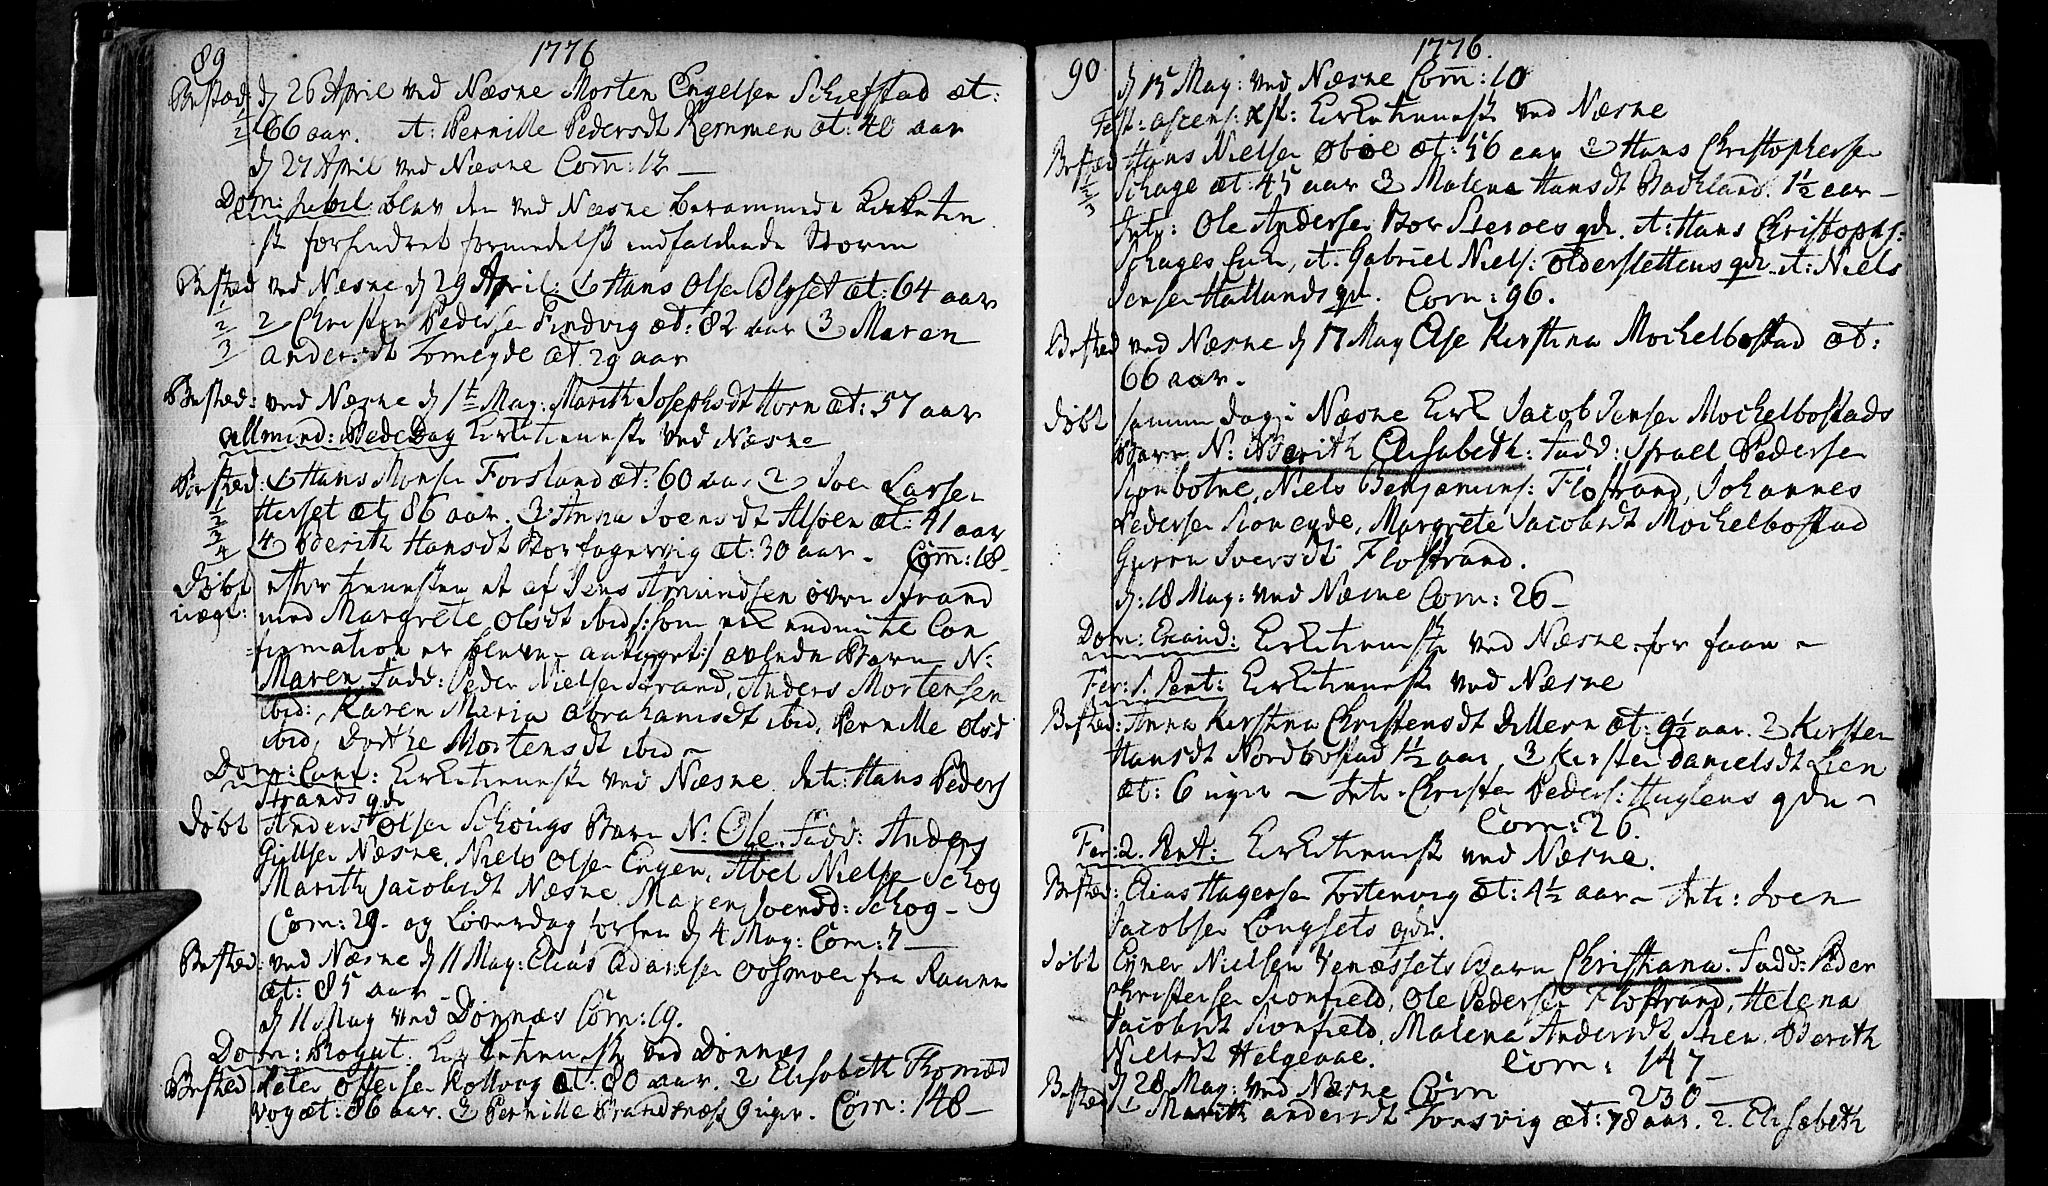 89
1776
Bested d 26 April ved Næsne Morten Engelsen Schefstad æt:
2 66 aar. A: Pernille Pedersdt Remmen æt: 40 aar
d 27 April ved Næsne Com: 12 —
Dom: Jubil: blev den ved Næsne berammede Kirketien
st forhindret formedelst indfaldende Storm
Bested ved Næsne d 29 April: 1 Hans Olsen Blyset æt: 64 aar
1 2 3
2 Christen Pedersen Sundvig æt: 82 aar 3 Maren
Andersdt Tomeyde æt. 29 aar
Bested: ved Næsne d 1te May: Marith Josephsdt Horn æt: 57 aar
Allmind: Bededag Kirketienneste ved Næsne
Bested: 1 Hans Monsen Forsland æt: 60 aar 2 Joen Larsen
1 2 3 4
Herset æt 86 aar. 3 Anna Joensdt Alsøen æt: 41 aar
4 Berith Hansdt Borfagervig æt: 30 aar. Com: 18
Døbt efter tienesten et af Jens Amundsen øvre Strand
uægt: med Margrete Olsdt ibid /: som endnu til Con
firmation er antaget :/ avlede Barn N:
Maren Fadd: Peder Nielsen Strand, Anders Mortensen
ibid:, Karen Maria Abrahamsdt ibid, Pernille Olsd
ibid, Dorthe Mortensdt ibid —
Dom: Cant: Kirketienneste ved Næsne. Intr: Hans Peders
Strands qde
Døbt Anders Olsen Schougs Barn N: Ole. Fadd: Anders
Gullsen Næsne, Niels Olsen Engen, Abel Nielsen Schog
Marith Jacobsdt Næsne Maren Joensd: Schog —
Com: 29. og Løverdag forhen d 4 May: Com: 7 —
Bested: ved Næsne d 11 May: Elias Adamsen fra Ranen
æt: 85 aar
d 11 May ved Dønnæs Com: 19.
Dom: Rogat. Kirketienneste ved Dønnes
Bested Peter Offersen Kollvog æt: 80 aar. 2 Elisabeth Thomæd
Vog æt: 86 aar. 3 Pernille Brandsnæs 9 uger. Com: 148 —
90
1776.
d 15 May: ved Næsne Com: 10
Fest: ascens: Xsti: Kirketienneste ved Næsne
Bested Hans Nielsen Obøe æt: 56 aar 2 Hans Christophersen
1 2 3
Schage æt: 45 aar 3 Malena Hansdt Backland 1½ aar —
Intr: Ole Andersen Bor Sleroes qde. A: Hans Christophs:
Schages Enke, A. Gabriel Niels: Olderslettens qde. A: Niels
Jensen Hallands qde. Com: 96.
Bested ved Næsne d 17 May Else Kirstina Mochelbostad æt:
66 aar.
Døbt samme dag i Næsne Kirk Jacob Jensen Mochelbostads
Barn N: Berith Elisabeth: Fadd: Israel Pedersen
Sionbotne, Niels Benjamins: Flostrand, Johannes
Pedersen Sioneyde, Margrete Jacobsdt Mochelbostad
Guren Iversdt Flostrand.
d: 18 May: ved Næsne Com: 26 —
Dom: Exaud: Kirketienneste ved Næsne for faae —
Fer: 1. Pent: Kirketienneste ved Næsne
Bested: Anna Kirstina Christensdt Dillern æt: 9½ aar. 2 Kirsten
Hansdt Nordbostad 1½ aar, 3 Kirsten Danielsdt Lien
æt: 6 uger — Intr. Christen Peders: Huglens qde —
Com: 26.
Fer: 2. Pent: Kirketienneste ved Næsne.
Bested: Elias Hagensen Tortenvig æt: 4½ aar — Intr: Joen
Jacobsen Longsets qde.
Døbt Eyner Nielsen Venæssets Barn Christiana. Fadd: Peder
Christensen Sionfield, Ole Pedersen Flostrand, Helena
Jacobsdt Sionfield, Malena Andersdt Steen, Berith
Nielsdt Helgeaae. Com: 147
d 28 May: ved Næsne Com 230
Bested 1 Marith Andersdt Tonsvig æt: 78 aar. 2. Elisabeth